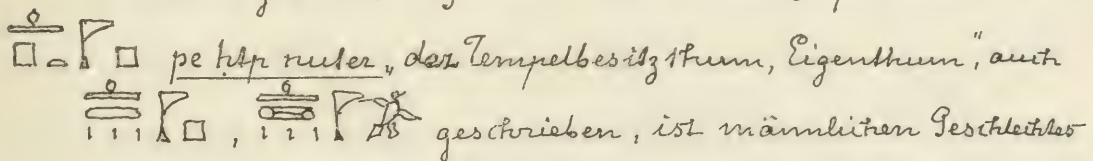 pe ḥtp nuter „das Tempelbesitzthum, Eigenthum", auch
, geschrieben, ist männlichen Geschlechtes